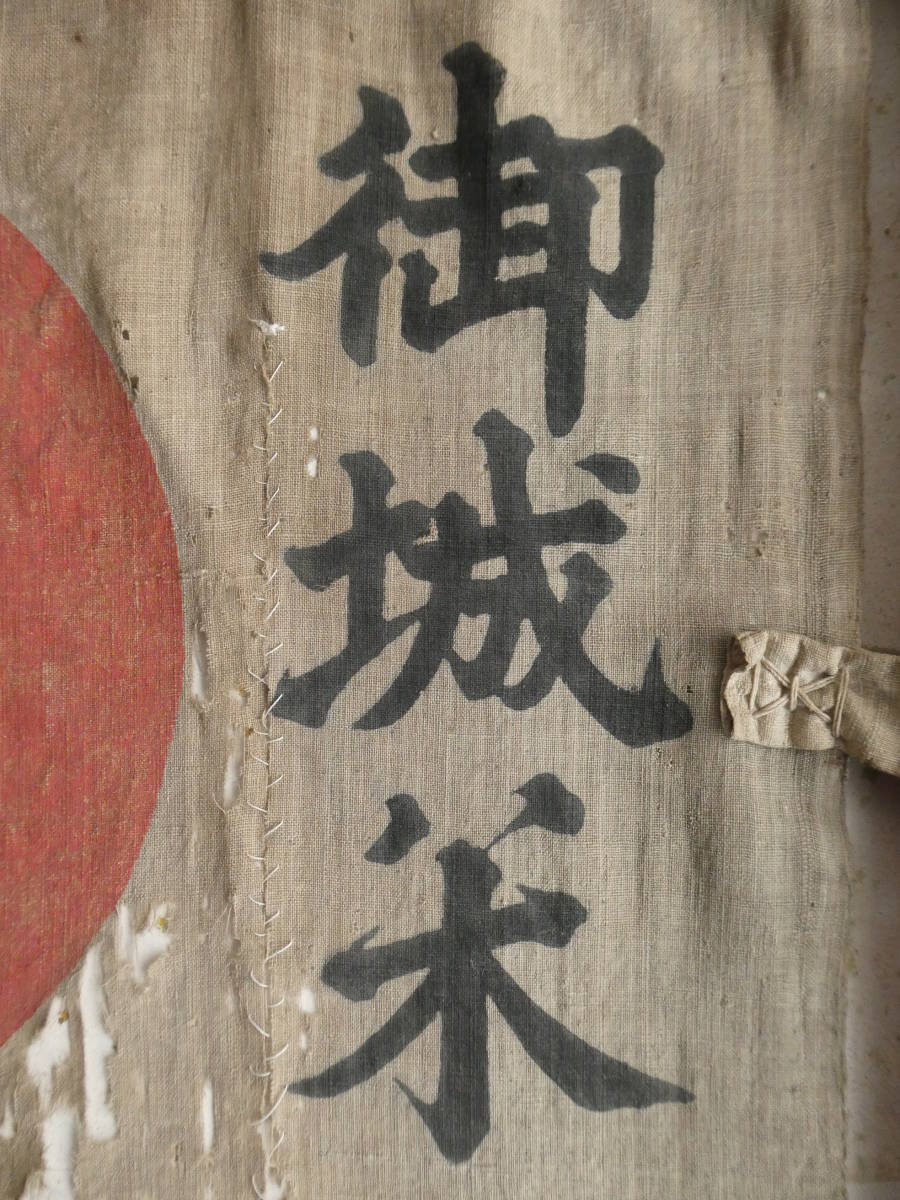 御城米